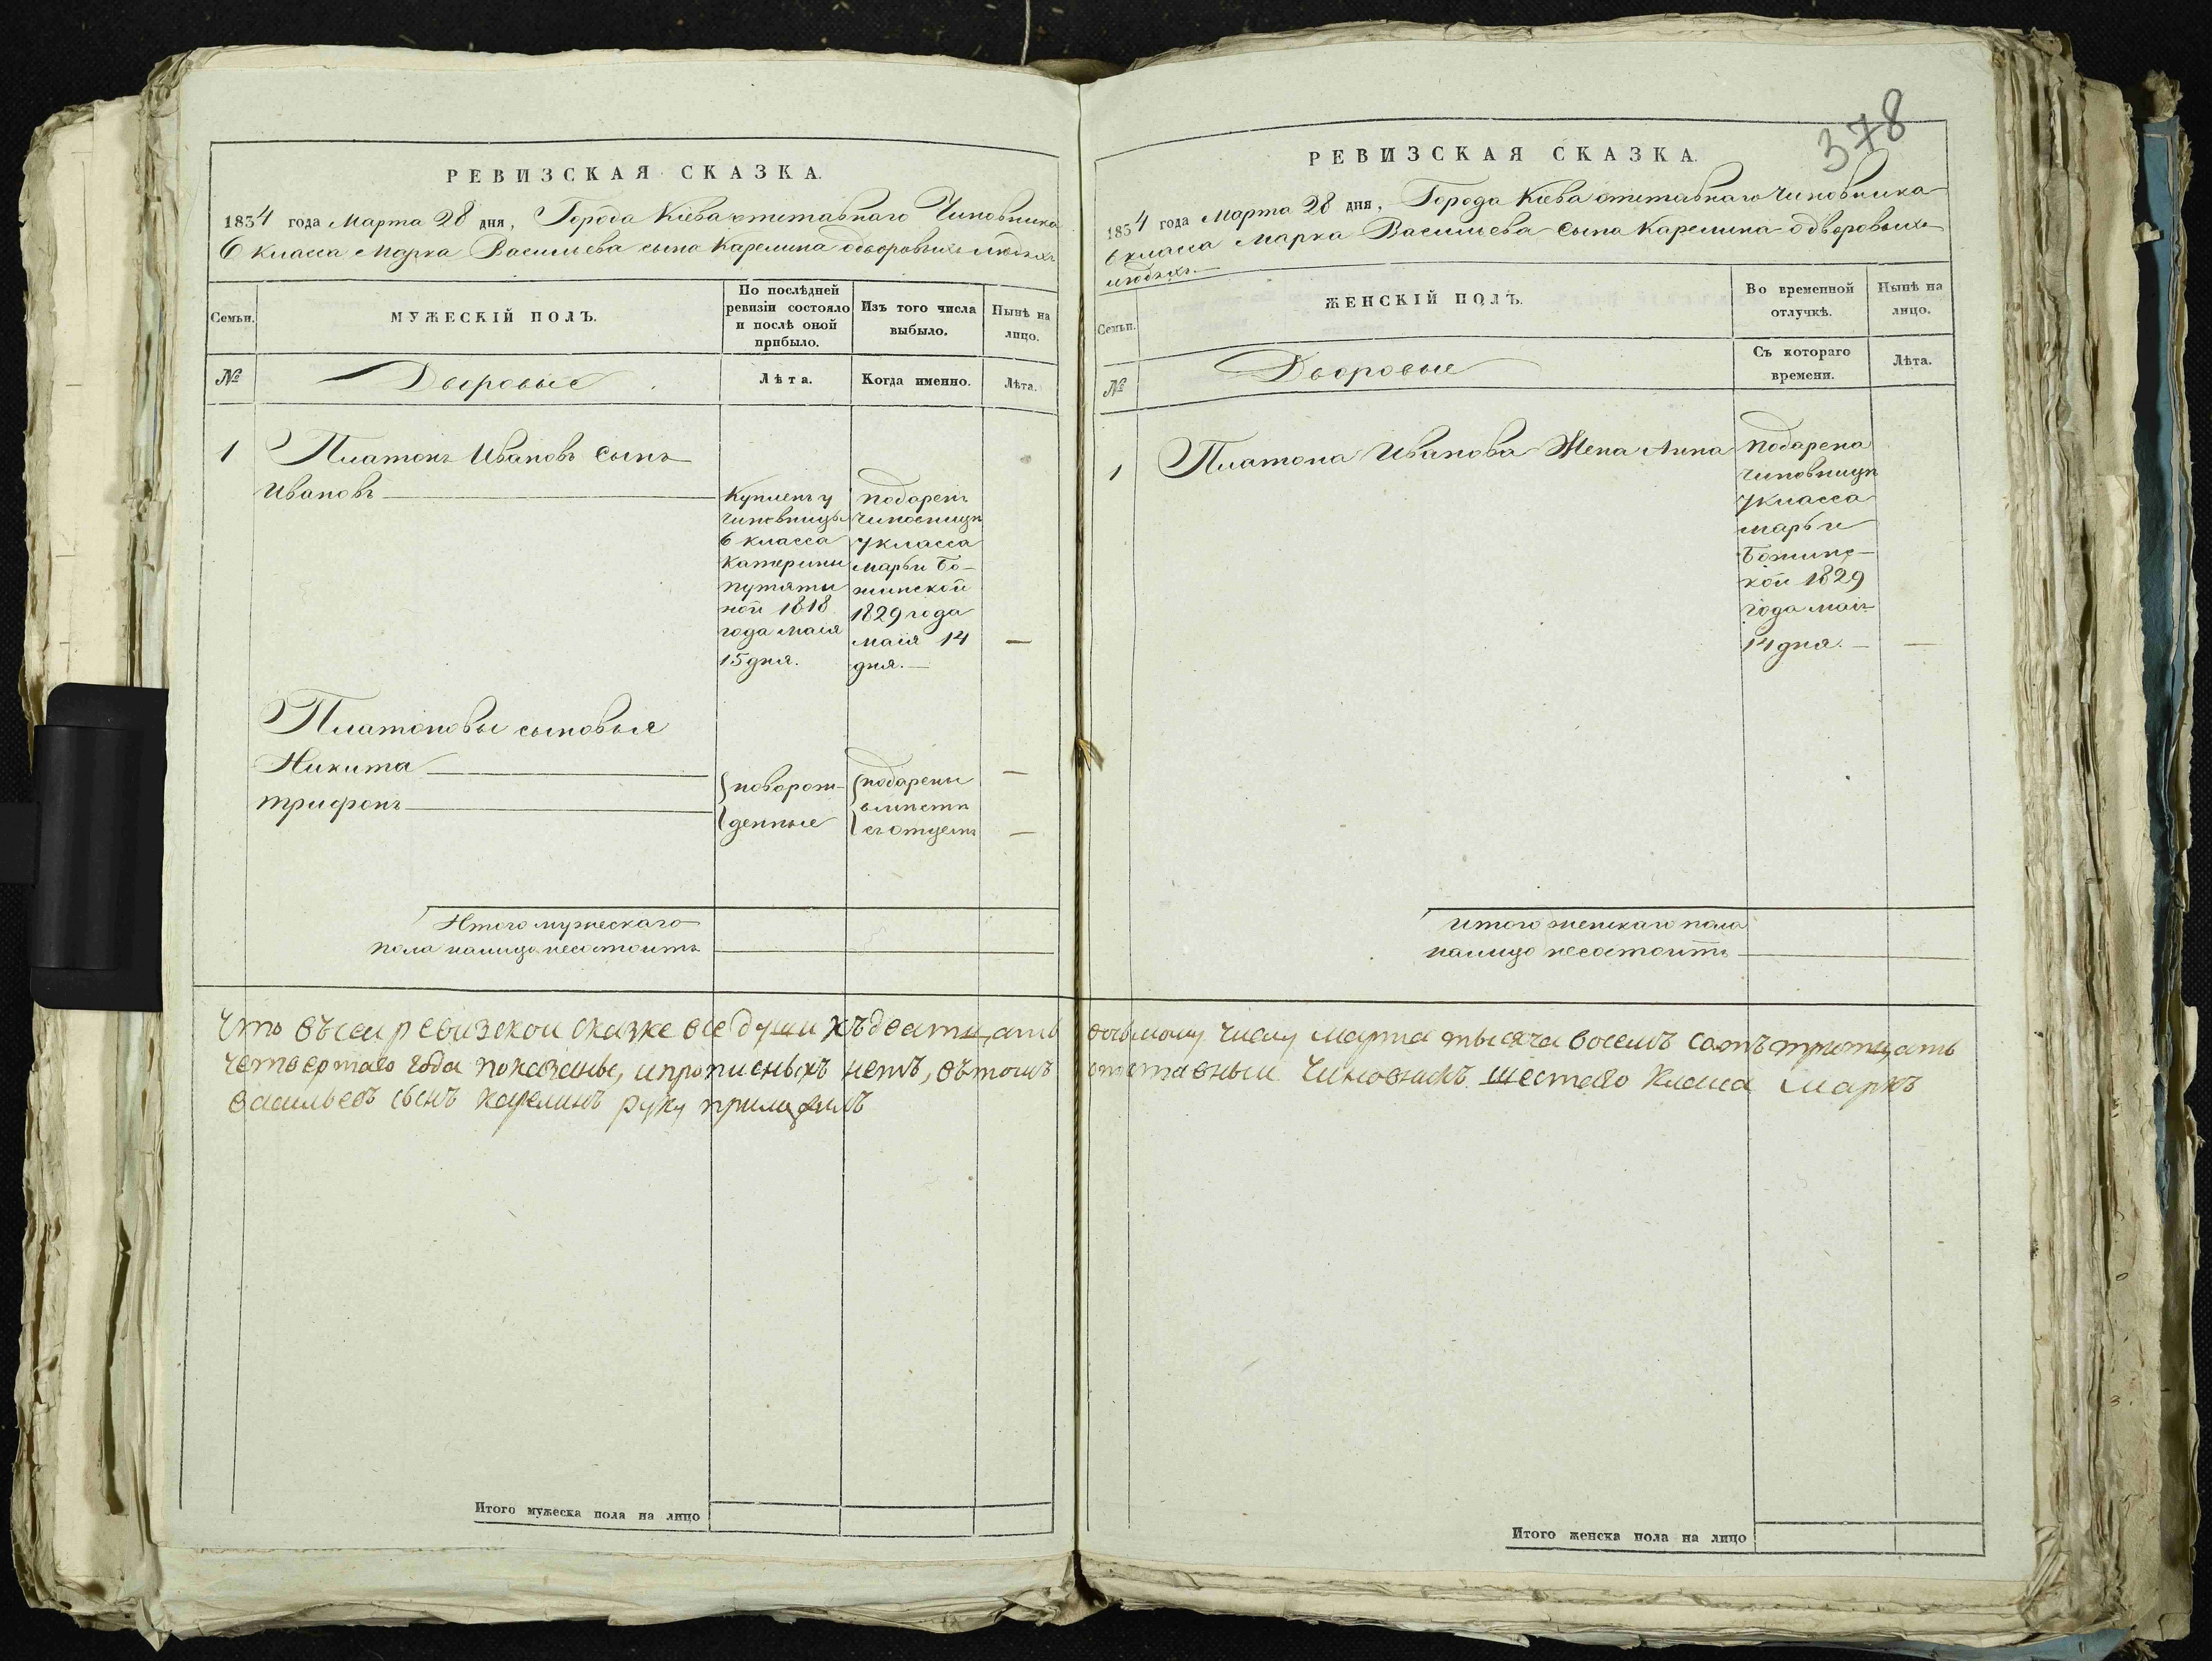 РЕВИЗСКАЯ СКАЗКА.
1834 года Марта 28 дня, Города Кіева отставнаго Чиновника
6 класса Марка Васильева сына Карелина одворовыхъ людяхъ
Семьи.
МУЖЕСКІЙ ПОЛЪ.
По послѣдней
ревизіи состояло
и послѣ оной
прибыло.
Изъ того числа
выбыло.
Нынѣ на
лицо.
№
Дворовые
Лѣта.
Когда именно.
Лѣта.
1
Платонъ Ивановъ Сынъ
Ивановъ
Купленъ у
чиновницы
6 класса
Катерины
путяти
ной 1818
года маія
15 дня.
подаренъ
чиновницѣ
7 класса
марьи Бо-
жинской
1829 года
маія 14
дня. —
—
Платоновы сыновья
Никита
трифонъ
новорож-
денные
подарены
вмѣстѣ
съ отцемъ
—
—
Итого мужескаго
пола налицо несостоитъ
Что въсеи ревизскои сказке все души къдватцать
четвертаго года показаны, ипрописныхъ нетъ, вътомъ
васильевъ сынъ карелинъ руку приложилъ
Итого мужеска пола на лицо
378
РЕВИЗСКАЯ СКАЗКА.
1834 года Марта 28 дня, Города Кіева отставнаго Чиновника
6 класса Марка Васильева Сына Карелина одворовыхъ
людяхъ. —
Семьи.
ЖЕНСКІЙ ПОЛЪ.
Во временной
отлучкѣ.
Нынѣ на
лицо.
№
Дворовые
Съ котораго
времени.
Лѣта.
1
Платона Иванова Жена Анна
подарена
чиновницѣ
7 класса
марьи
Божинс-
кой 1829
года маія
14 дня. —
—
Итого женскаго пола
налицо несостоитъ
восьмому числу марта тысяча восемъ сотъ тритцать
отставныи Чиновникъ шестаго Класа Маркъ
Итого женска пола на лицо